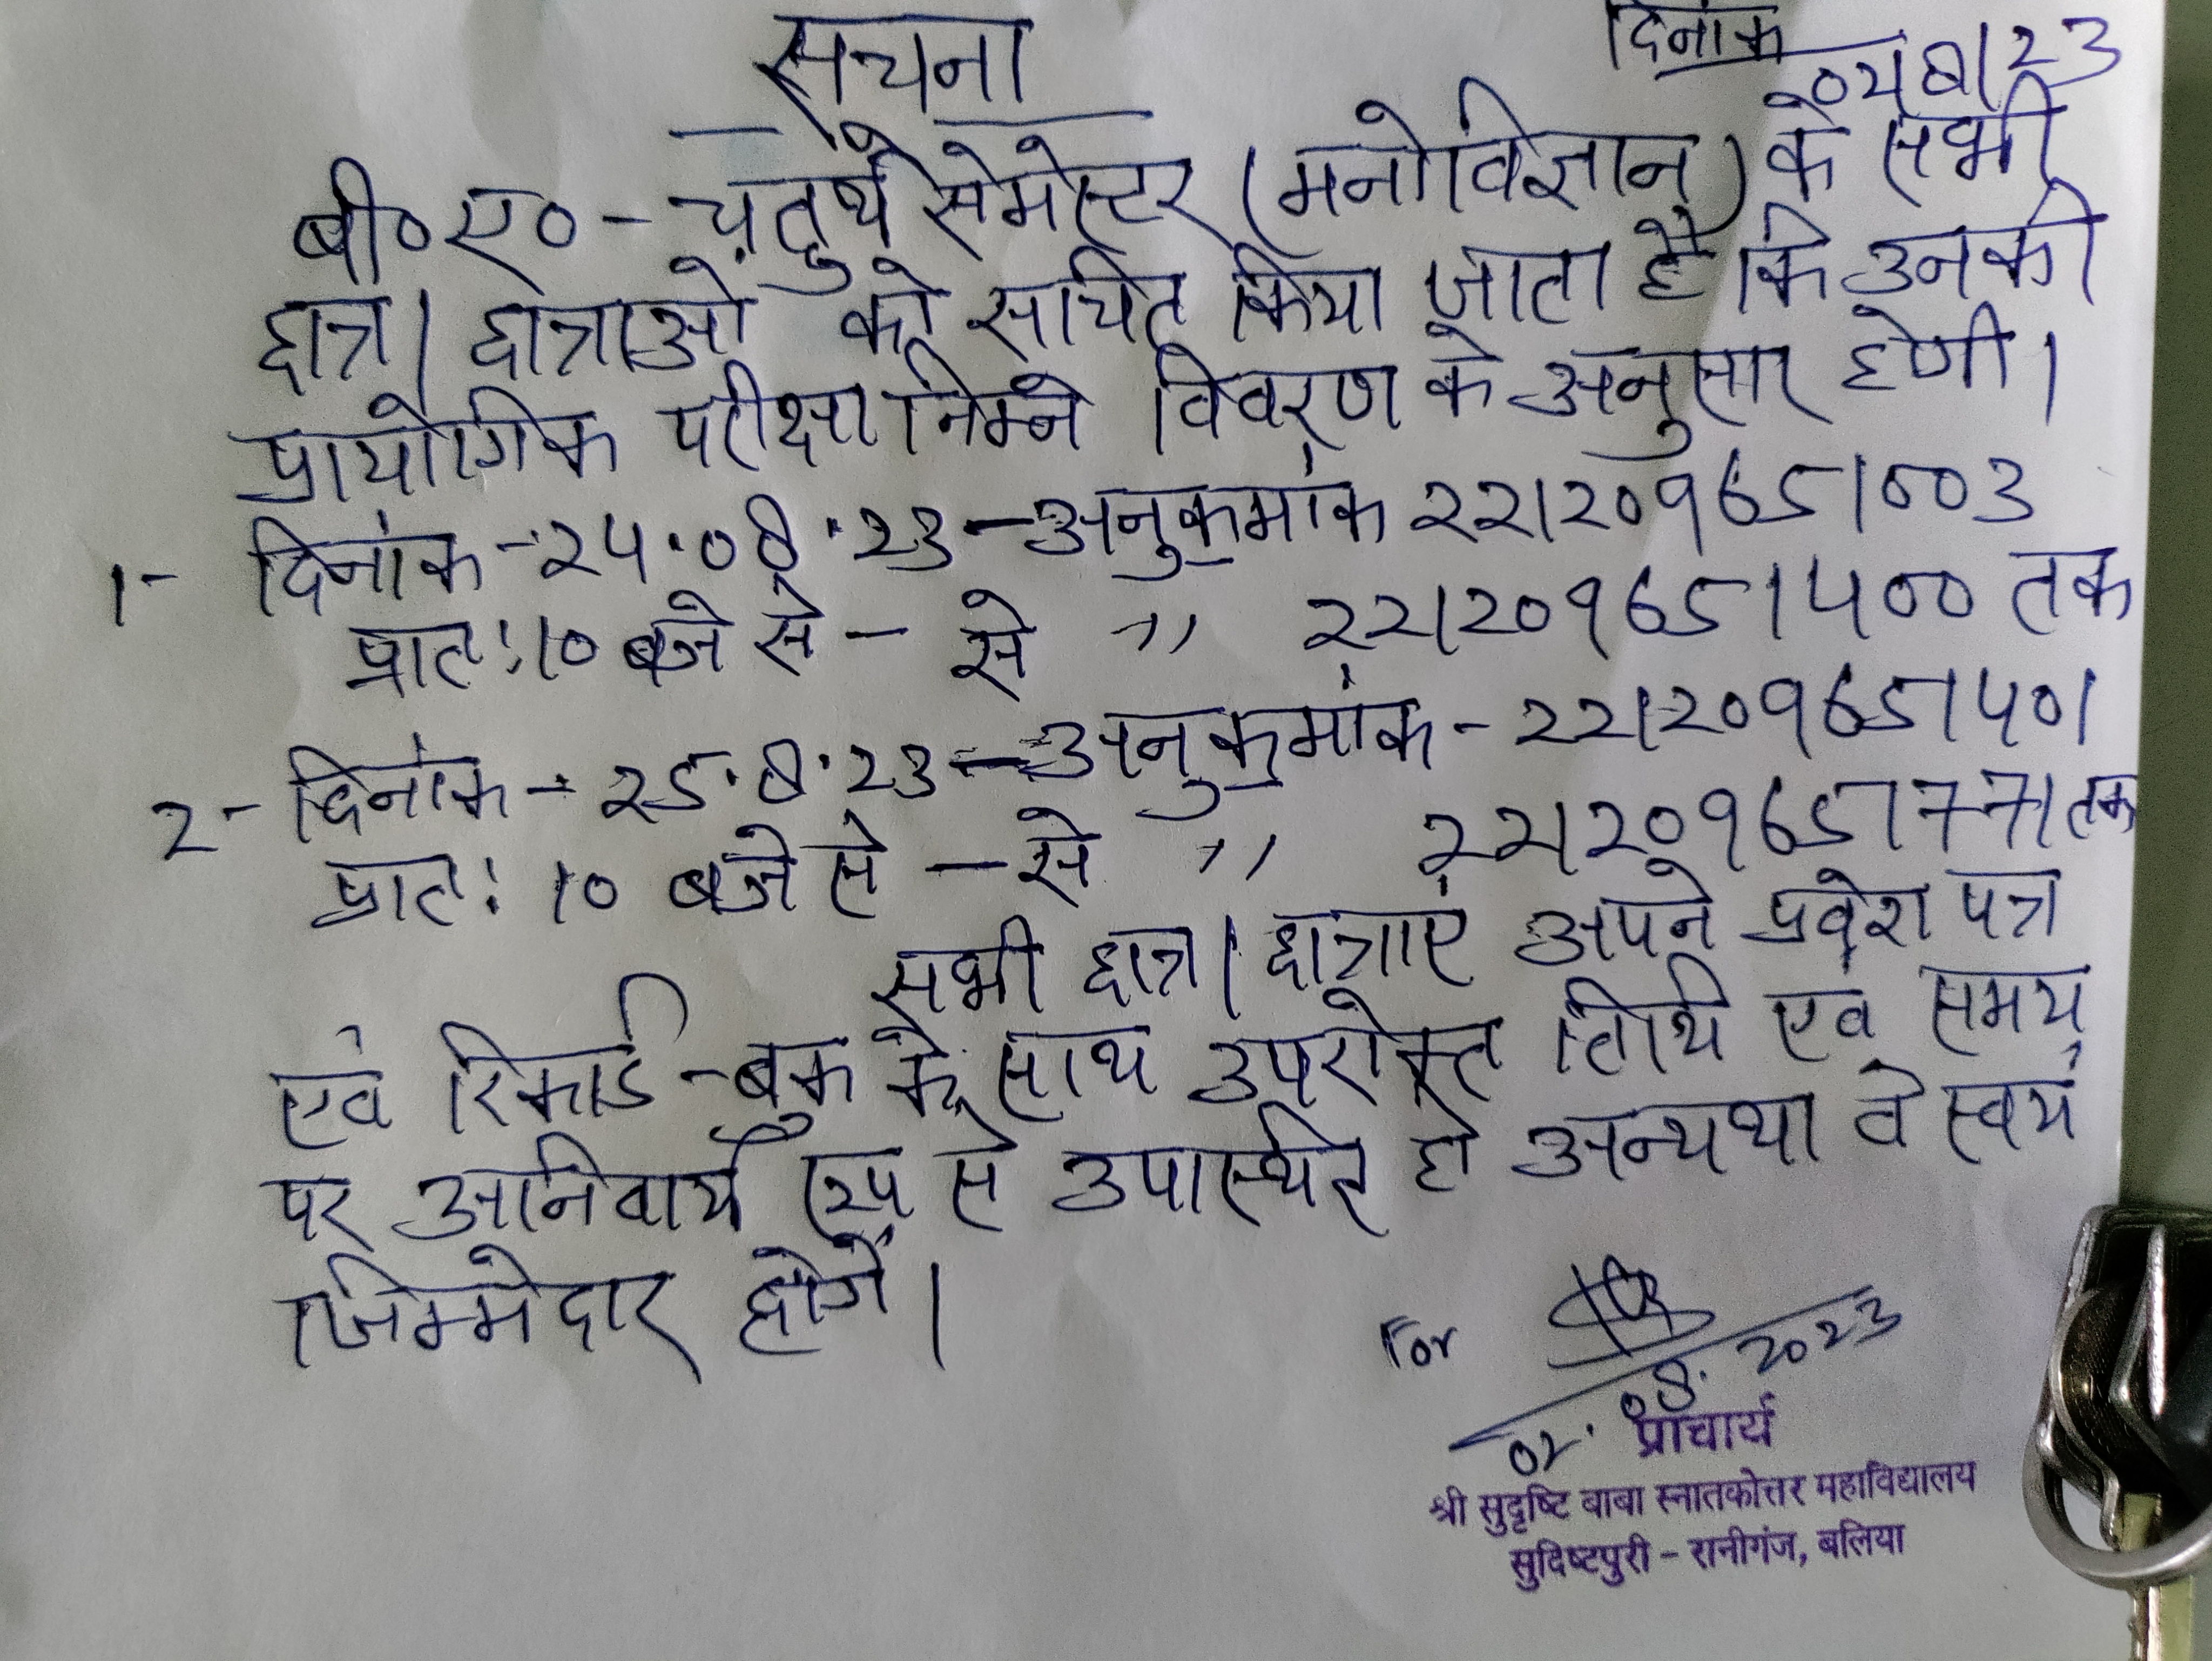 सूचना
दिनांक
02/8/23
बी०ए०-चतुर्थ सेमेस्टर (मनोविज्ञान) के सभी
छात्र/छात्राओं को सूचित किया जाता है कि उनकी
प्रायोगिक परीक्षा निम्न विवरण के अनुसार होगी।
1- दिनांक-24.08.23-अनुक्रमांक 221209651003
प्रातः10 बजे से - से ,, 221209651400 तक
2- दिनांक-25.8.23-अनुक्रमांक-221209651401
प्रातः 10 बजे से - से ,, 221209651771 तक
सभी छात्र/छात्राएं अपने प्रवेश पत्र
एवं रिकार्ड-बुक के साथ उपरोक्त तिथि एवं समय
पर अनिवार्य रूप से उपस्थित हो अन्यथा वे स्वयं
जिम्मेदार होगें।
For
02.08.2023
प्राचार्य
श्री सुदृष्टि बाबा स्नातकोत्तर महाविद्यालय
सुदिष्टपुरी - रानीगंज, बलिया